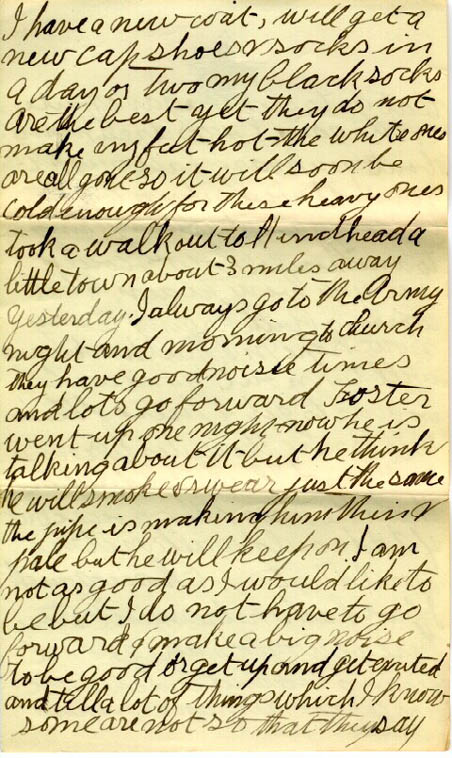 I have a new coat, will get a
new cap shoes & socks in
a day or two my black socks
are the best yet they do not
make my feet hot - the white ones
are all gone so it will soon be
cold enough for these heavy ones
took a walk out to Hindhead a
little town about 3 miles away
yesterday. I always go to the Army
night and morning to church
they have good noisie times
and lots go forward Foster
went up one night - now he is
talking about it but he think
he will smoke & swear just the same
the pipe is making him thin &
pale but he will keep on I am
not as good as I would like to
be but I do not have to go
forward & make a big noise
to be good or get up and get excited
and tell a lot of things which I know
some are not so that they say